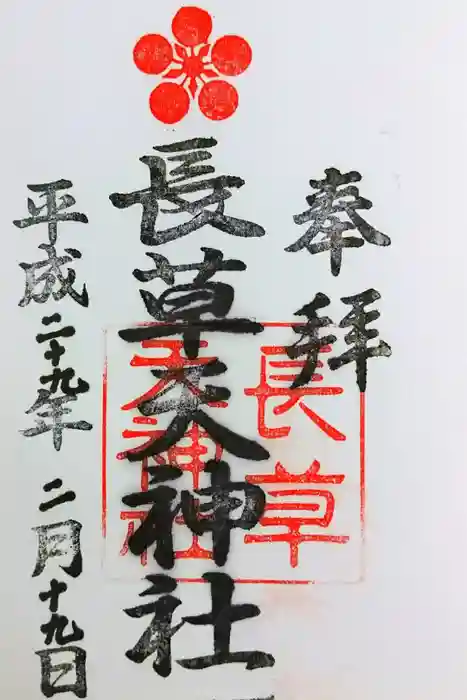 奉拝
長草天神社
長草
天神社
平成二十九年 二月十九日